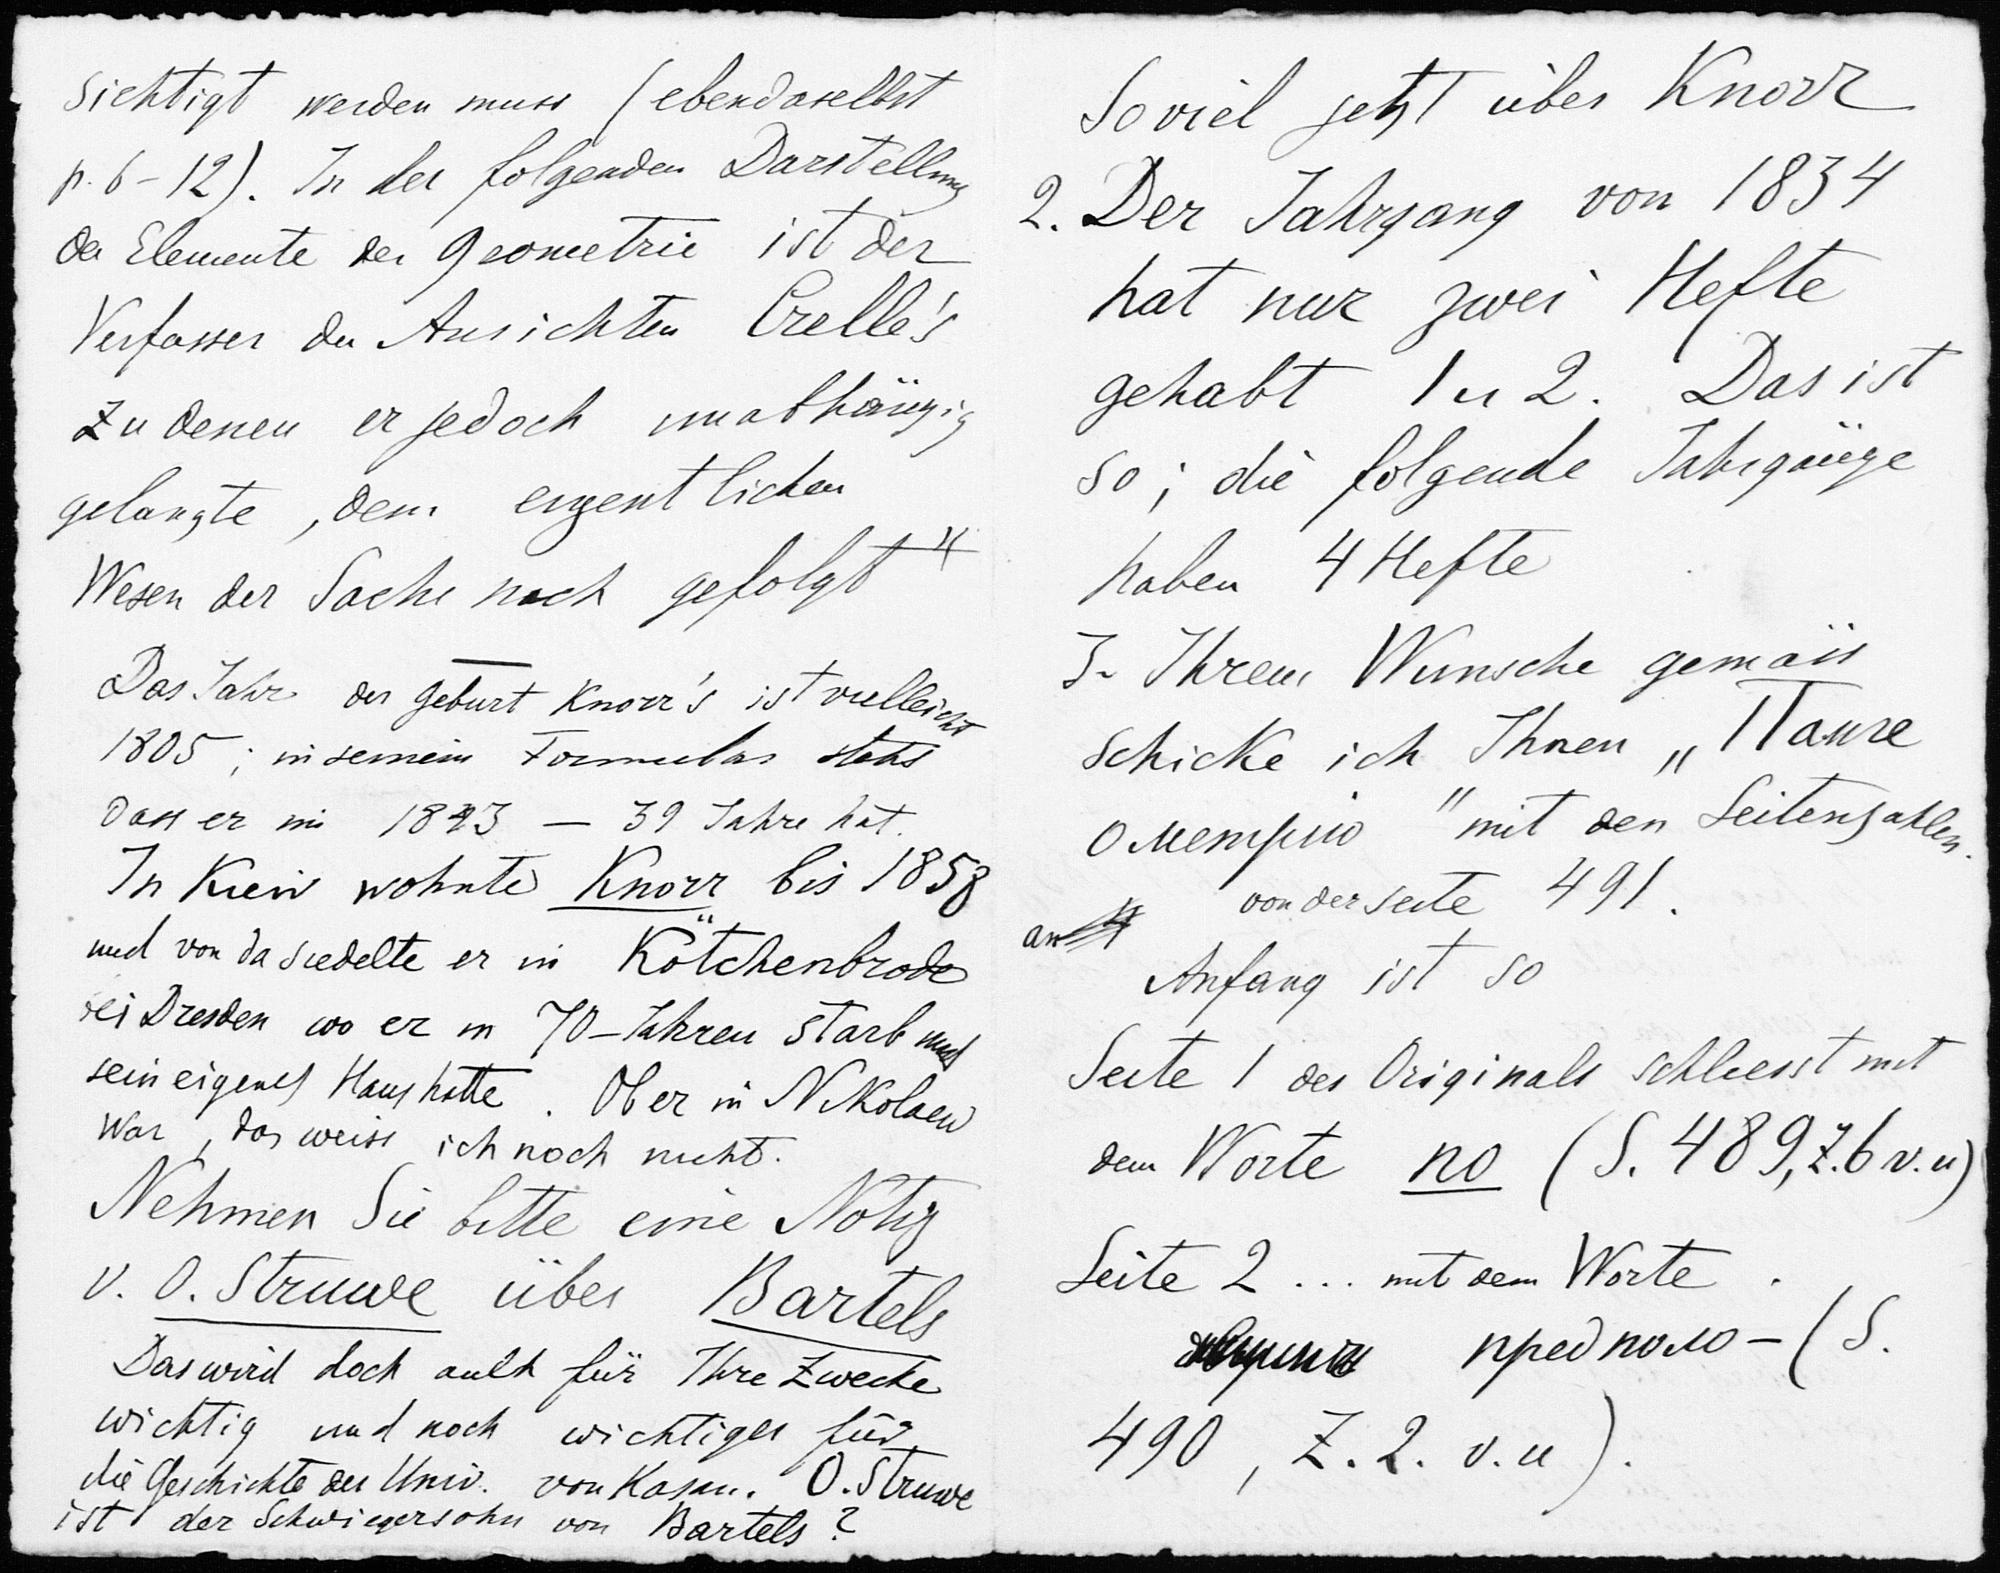 sichtigt werden muss (ebendaselbst
p. 6-12). In der folgenden Darstellung
der Elemente der Geometrie ist der
Verfasser den Ansichten Crelle's
zu denen er jedoch unabhängig
gelangte, dem eigentlichen
Wesen der Sache nach gefolgt"
Das Jahr der Geburt Knorr's ist vielleicht
1805; in seinem Formular steht
dass er im 1843 — 39 Jahre hat.
In Kiew wohnte Knorr bis 1858
und von da siedelte er in Kötchenbrode
bei Dresden wo er in 70-Jahren starb und
sein eigenes Haus hatte. Ob er in Nikolaew
war, das weiss ich noch nicht.
Nehmen Sie bitte eine Notiz
v. O. Struwe über Bartels
Das wird doch auch für Ihre Zwecke
wichtig und noch wichtiger für
die Geschichte der Univ. von Kasan. O. Struwe
ist der Schwiegersohn von Bartels?
Soviel jetzt über Knorr
2. Der Jahrgang von 1834
hat nur zwei Hefte
gehabt 1 u 2. Das ist
so; die folgende Jahrgänge
haben 4 Hefte
3. Ihrem Wunsche gemäss
schicke ich Ihnen „
" mit den Seitenzahlen
an von der Seite 491.
Anfang ist so
Seite 1 des Originals schliesst mit
dem Worte по (S. 489, Z. 6 v. u)
Seite 2 ... mit dem Worte
предполо- (S.
490, Z. 2. v. u).